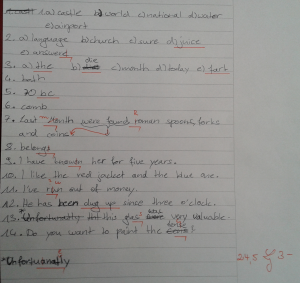 1. a) castle b) world c) national d) water
e) airport
2. a) language b) church c) sure d) juice
e) answer
3. a) the b) die c) month d) today e) fork
4. both
5. 70 bc
6. comb
7. Last Month were found roman spoons, forks
and coins
8. belongs
9. I have known her for five years.
10. I like the red jacket and the blue one.
11. I've run out of money.
12. He has been dug up since three o'clock.
13. Unfortunatly this glas very valuable.
14. Do you want to paint the fence!
Unfortunatly
24,5 3-